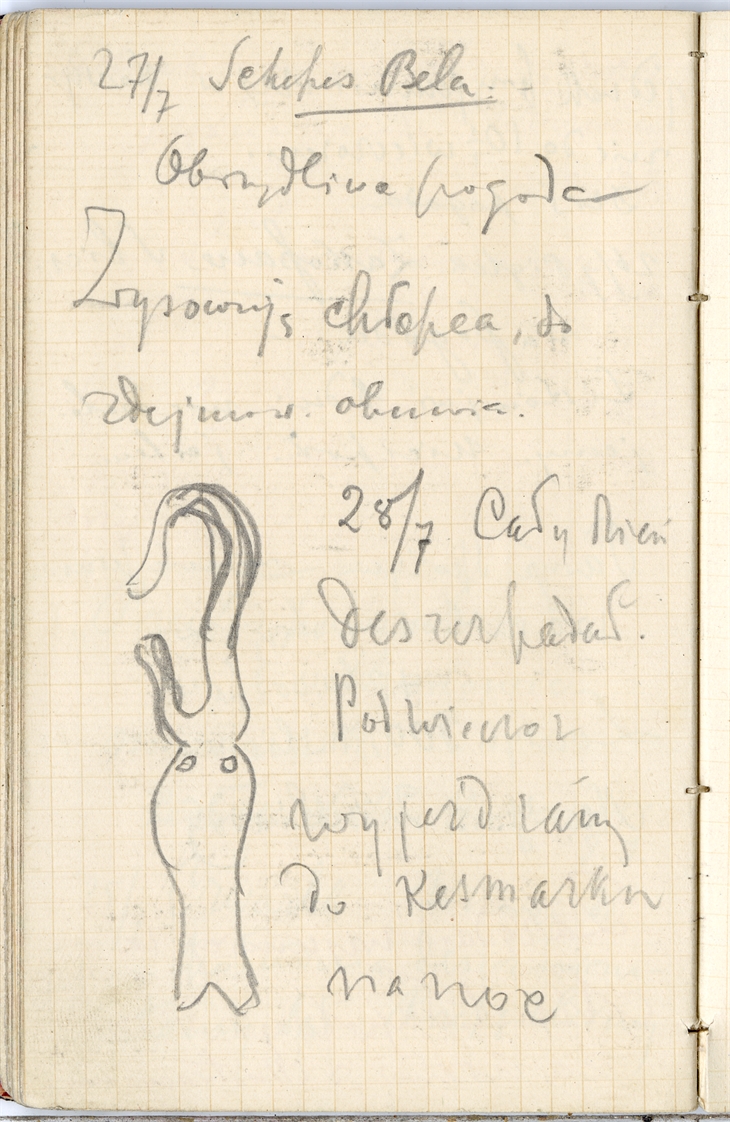 27/7 Schepes Bela.
Obrzydliwa pogoda
Zrysowuję chłopca, do
zdejmow. obuwia.
28/7 Cały dzień
deszcz padał.
Pod wieczor
wyjeżdżámy
do Kesmarku
na noc